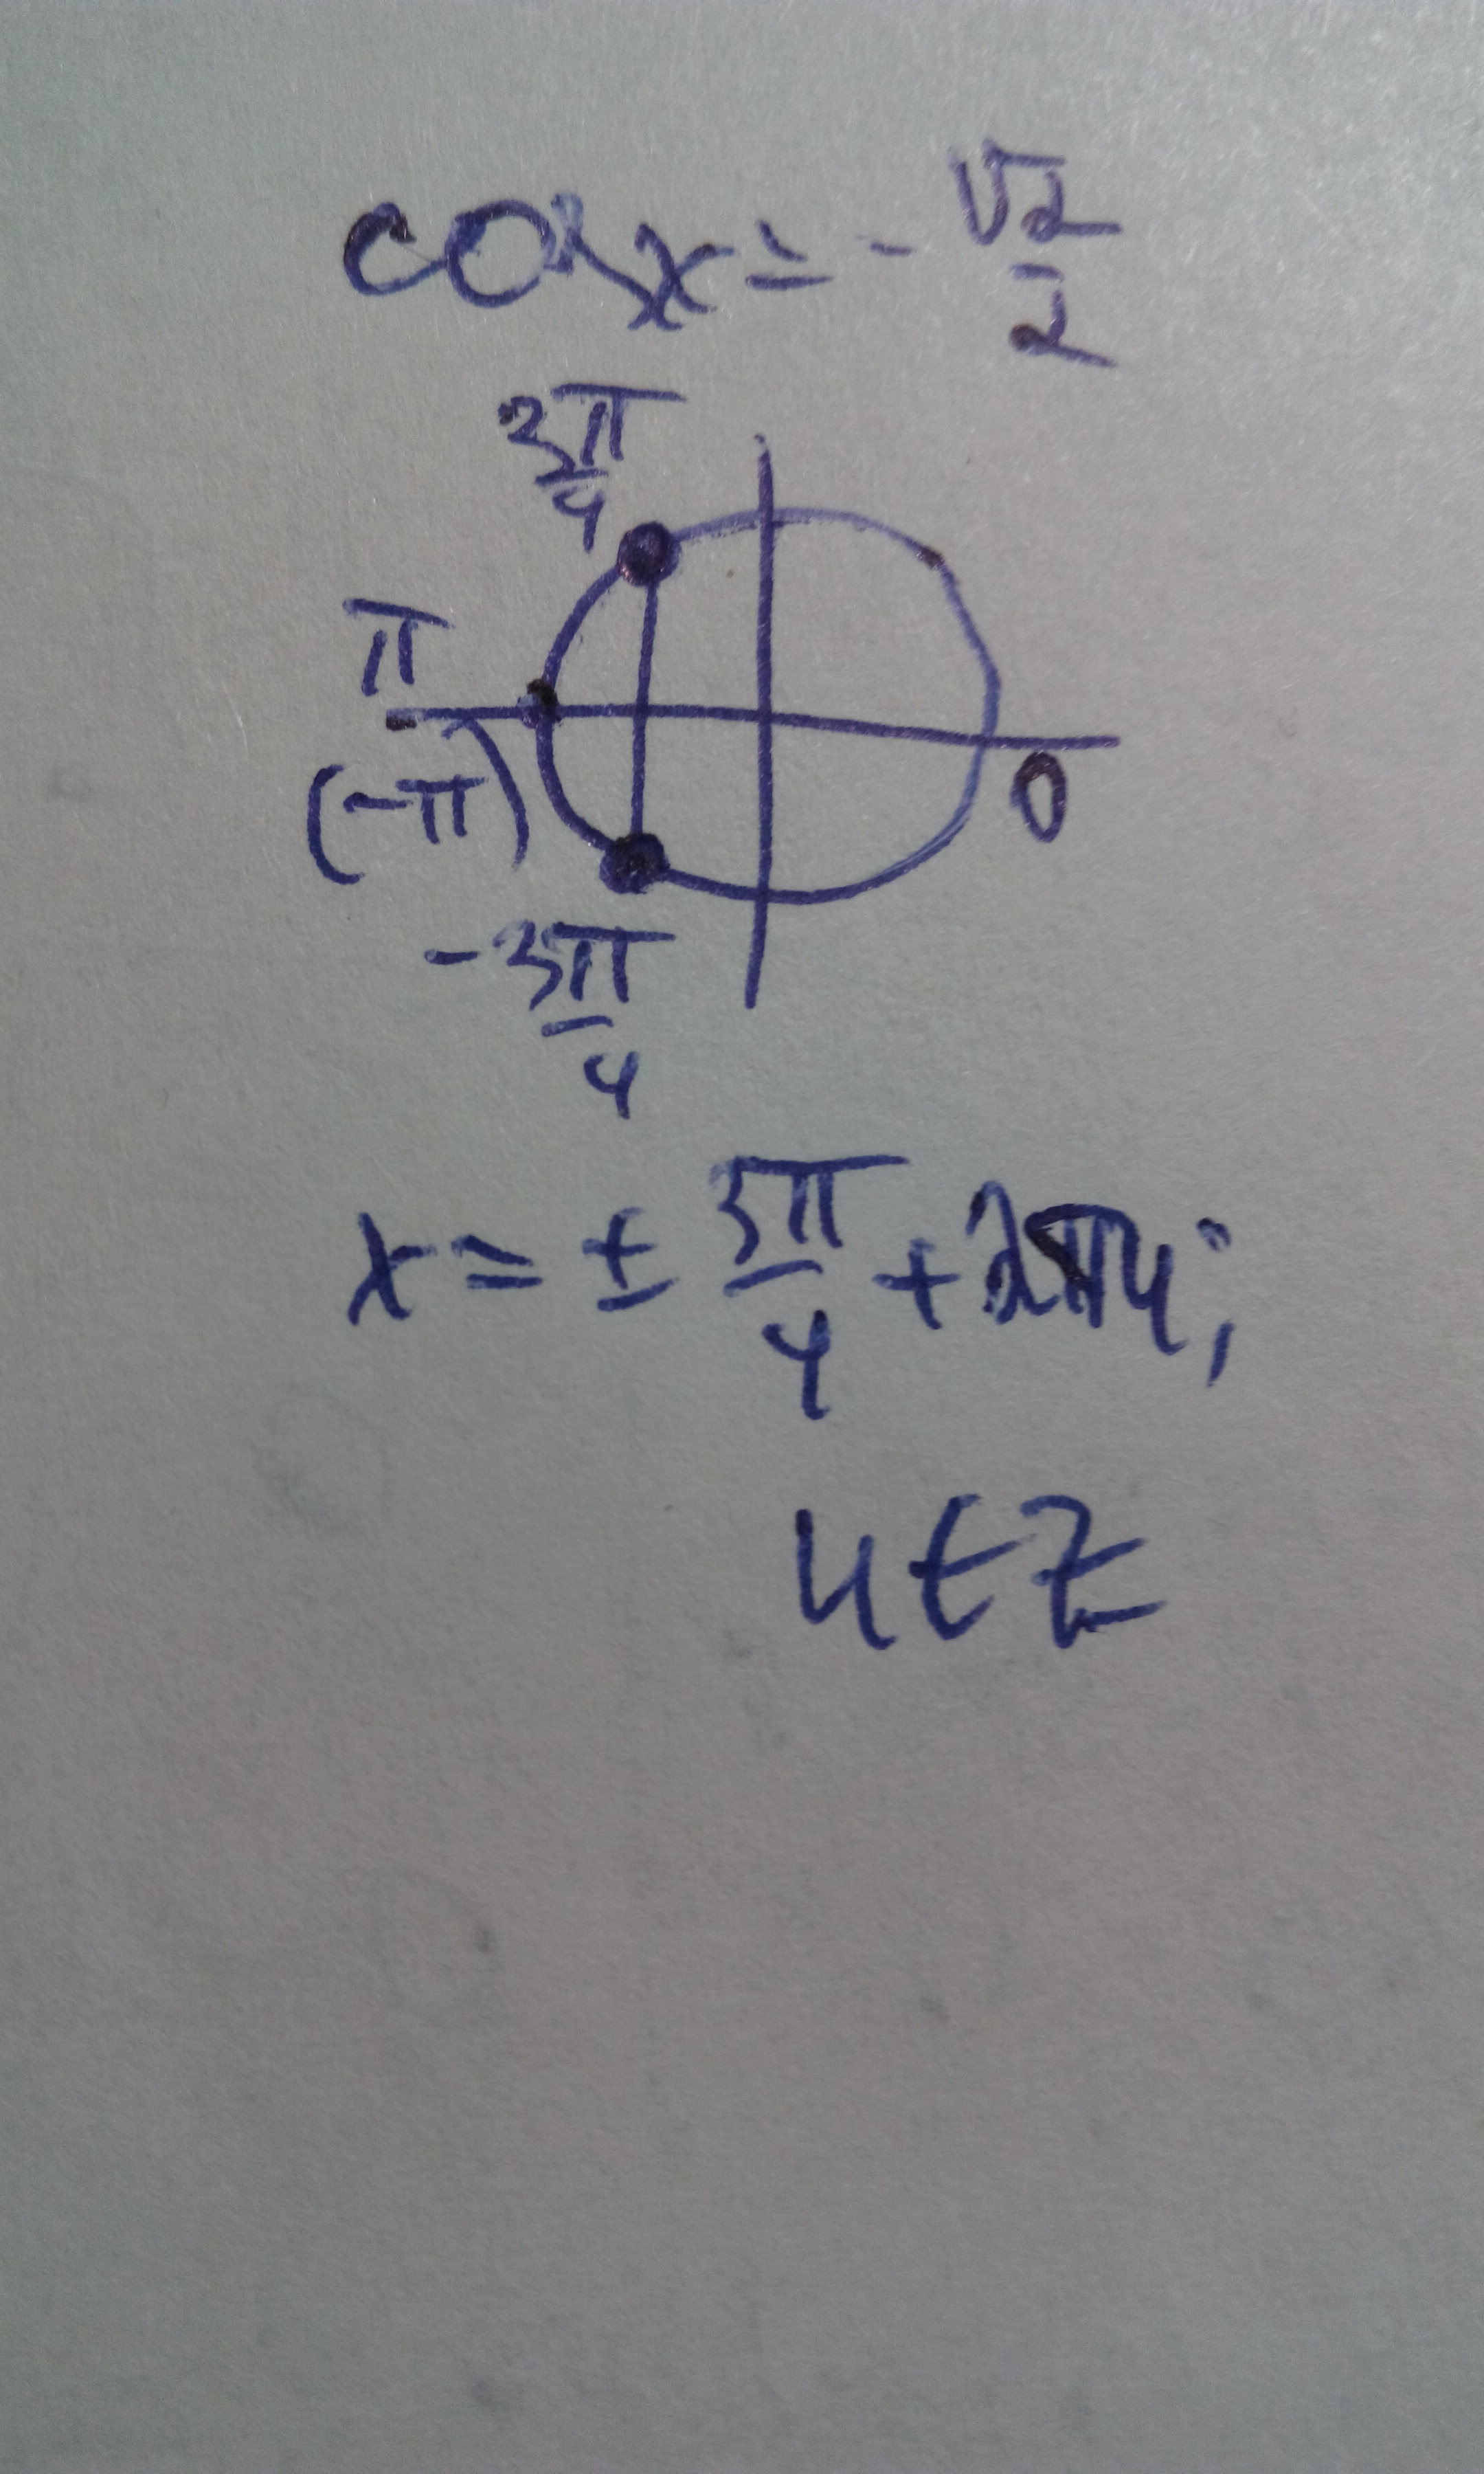 cos x = - √2/2
3π/4
π
(-π)
0
-3π/4
x = ± 3π/4 + 2πn;
n ∈ Z